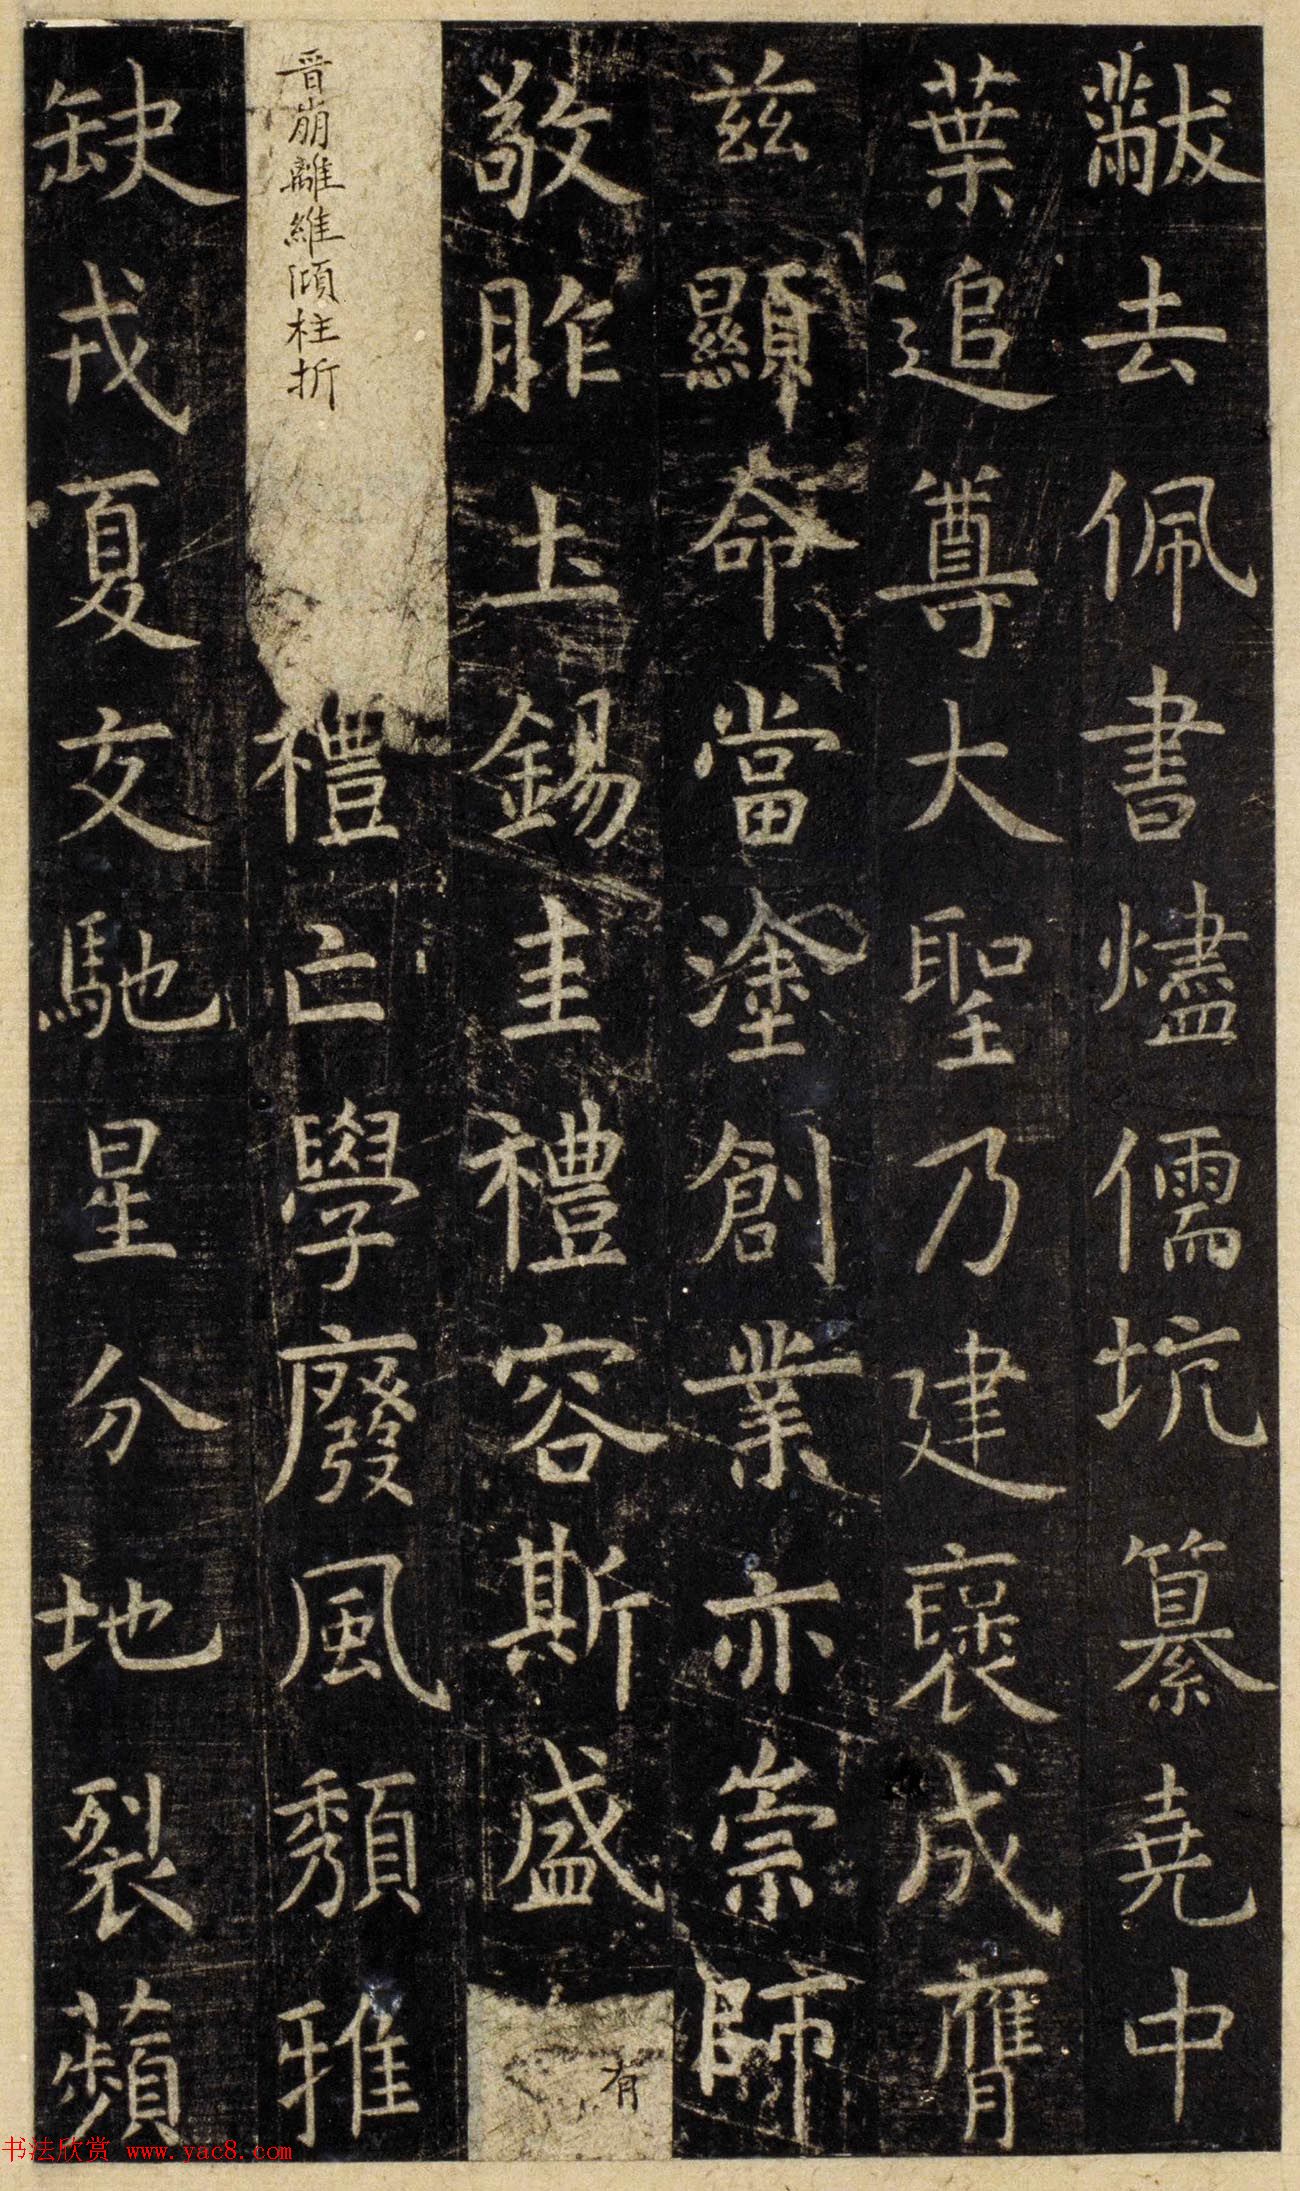 黻去佩書燼儒坑纂堯中
葉追尊大聖乃建褒成膺
兹顯命當塗創業亦崇師
敬胙土錫圭禮容斯盛有
晉崩離維傾柱折禮亡學廢風頹雅
缺戎夏交馳星分地裂蘋
书法欣赏 www.yac8.com